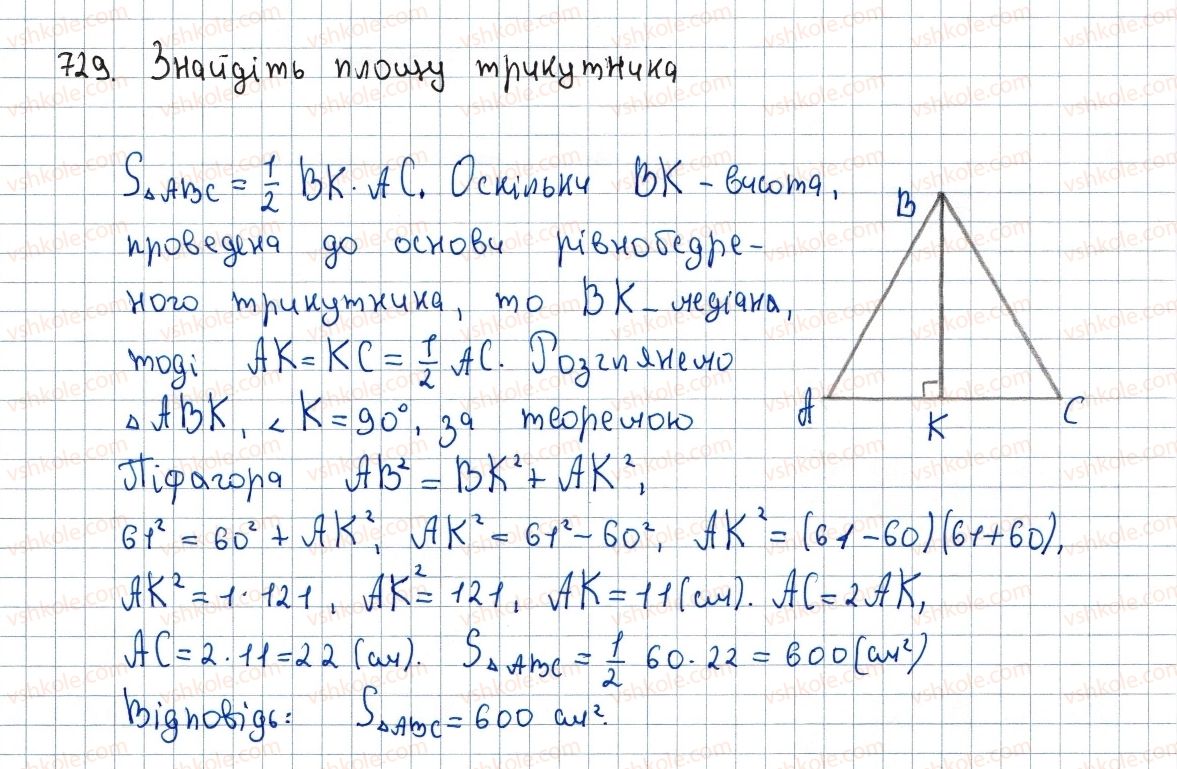 729. Знайдіть площу трикутника
S△ABC = 1/2 BK · AC. Оскільки BK – висота,
проведена до основи рівнобедре-
ного трикутника, то BK – медіана,
тоді AK = KC = 1/2 AC. Розглянемо
△ ABK, ∠ K = 90°, за теоремою
Піфагора AB² = BK² + AK²,
61² = 60² + AK², AK² = 61² – 60², AK² = (61 – 60)(61 + 60),
AK² = 1 · 121, AK² = 121, AK = 11 (см). AC = 2AK,
AC = 2 · 11 = 22 (см). S△ABC = 1/2 60 · 22 = 600 (см²)
Відповідь: S△ABC = 600 см².
B
A
K
C
vshkole.com